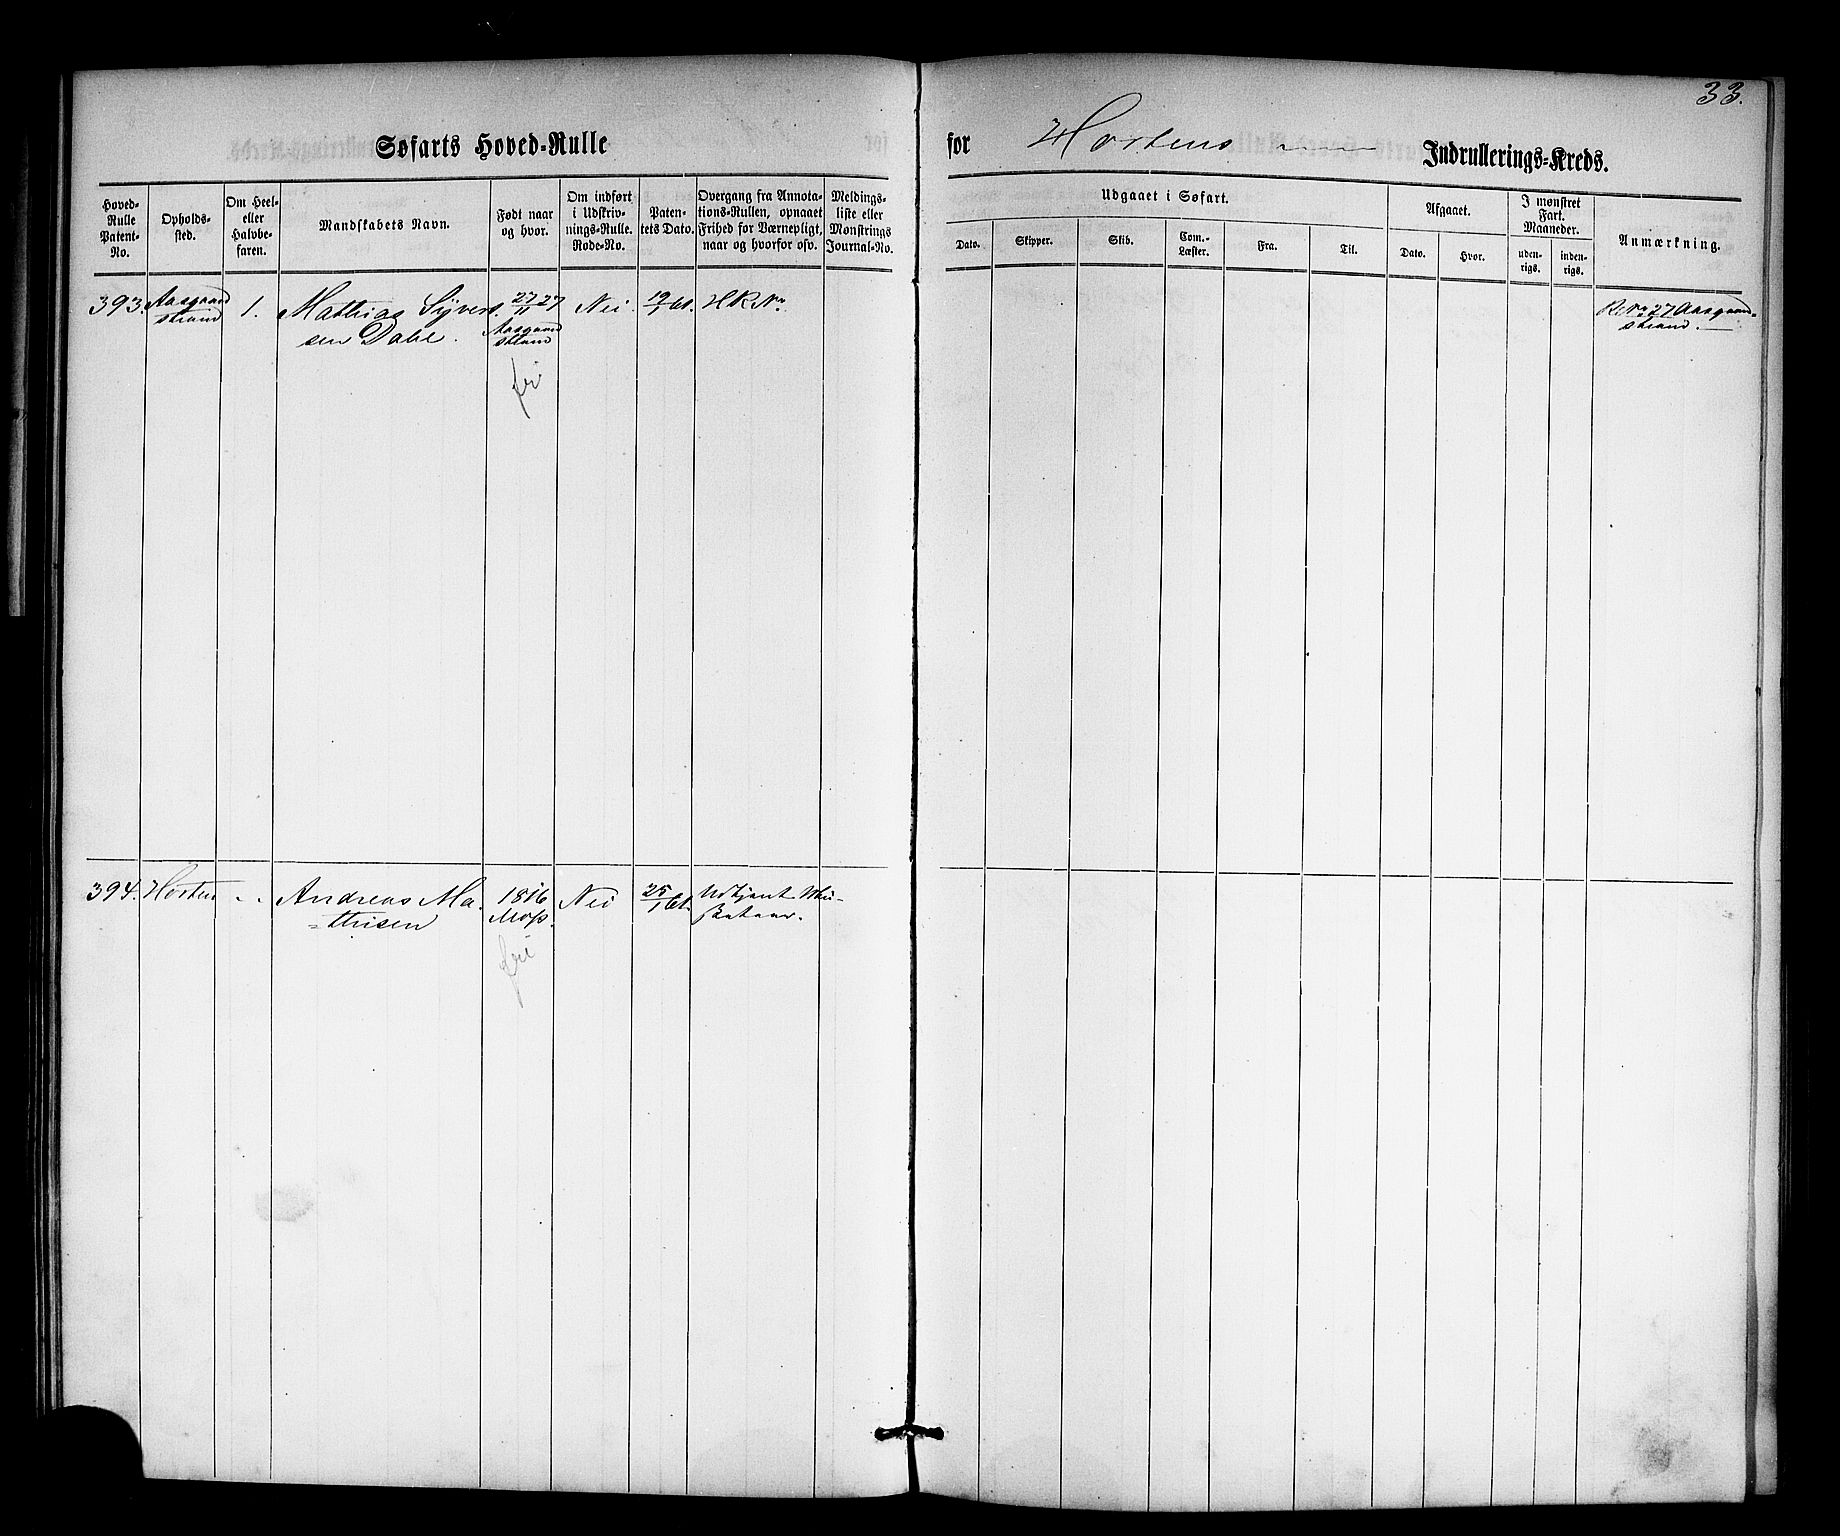 33.
Søfarts Hoved-Rulle for Hortens Indrullerings-Kreds.
Hoved-Rulle Patent-No.
Opholds-sted.
Om Heel- eller Halvbe-faren.
Mandskabets Navn.
Født naar og hvor.
Om indført i Udskriv-nings-Rulle. Rode-No.
Paten-tets Dato.
Overgang fra Annota-tions-Rullen, opnaaet Frihed for Værnepligt, naar og hvorfor osv.
Meldings-liste eller Mønstrings Journal-No.
Udgaaet i Søfart.
Dato.
Skipper.
Skib.
Com.-Læster.
Fra.
Til.
Afgaaet.
Dato.
Hvor.
I mønstret Fart. Maaneder.
uden-rigs.
inden-rigs.
Anmærkning.
393. Aasgaard 1. Mathias Syvert- 27/11 27 Nei 19/1 61. HR No R. No 27 Aasgaard-
strand sen Dahl. Aasgaard strand.
strand
fri
394. Horten - - Andreas Ma- 1816 Nei 25/1 61.
=thisen Moss.
fri